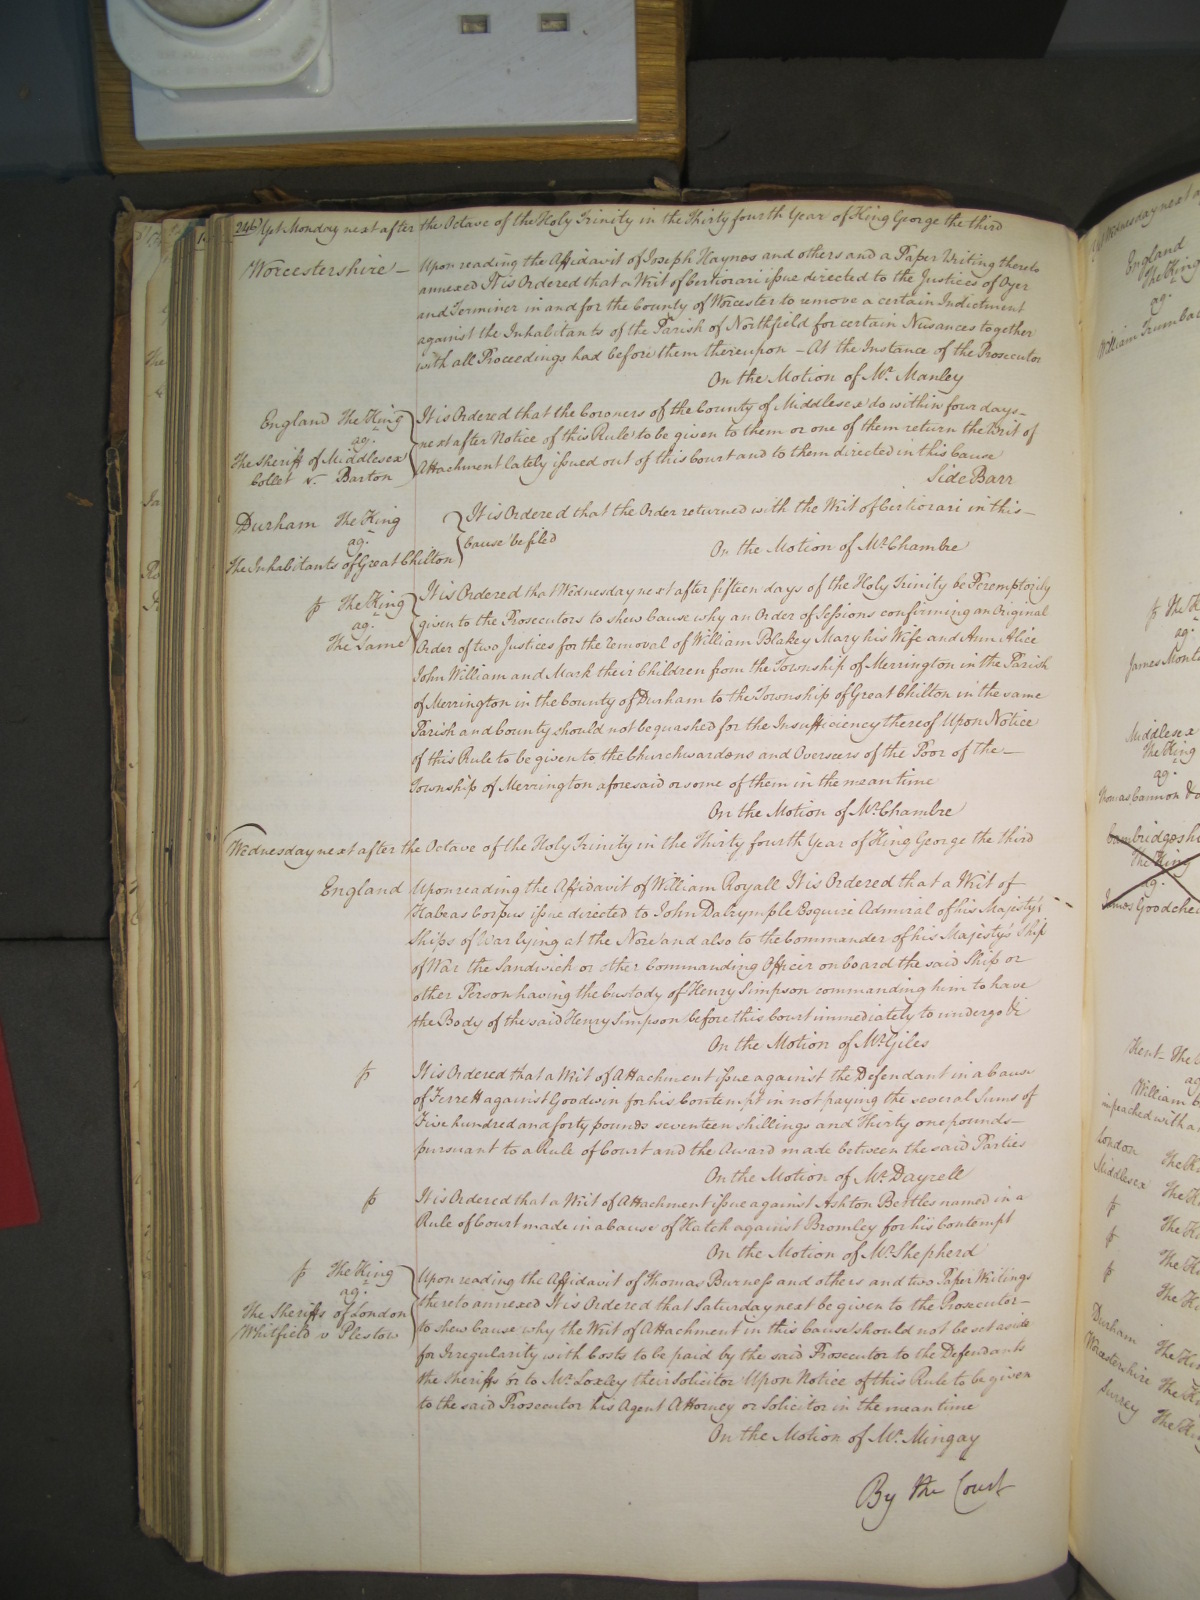 246 Yet Monday next after the Octave of the Holy Trinity in the Thirty fourth Year of King George the third
Worcestershire – Upon reading the Affidavit of Joseph Haynes and others and a Paper Writing thereto
annexed It is Ordered that a Writ of Certiorari issue directed to the Justices of Oyer
and Terminer in and for the County of Worcester to remove a certain Indictment
against the Inhabitants of the Parish of Northfield for certain Nusances together
with all Proceedings had before them thereupon – At the Instance of the Prosecutor
On the Motion of Mr. Manley
England The King
ag.
The Sheriff of Middlesex
Collet v. Barton
It is Ordered that the Coroners of the County of Middlesex do within four days –
next after Notice of this Rule to be given to them or one of them return the Writ of
Attachment lately issued out of this Court and to them directed in this Cause
Side Barr
Durham The King
ag.
The Inhabitants of Great Chilton
It is Ordered that the Order returned with the Writ of Certiorari in this –
Cause be filed
On the Motion of Mr. Chambre
The King
ag.
The Same
It is Ordered that Wednesday next after fifteen days of the Holy Trinity be Peremptorily
given to the Prosecutors to shew Cause why an Order of Sessions confirming an Original
Order of two Justices for the removal of William Blakey Mary his Wife and Ann Alice
John William and Mark their Children from the Township of Merrington in the Parish
of Merrington in the County of Durham to the Township of Great Chilton in the same
Parish and County should not be quashed for the Insufficiency thereof Upon Notice
of this Rule to be given to the Churchwardens and Overseers of the Poor of the –
Township of Merrington aforesaid or some of them in the mean time
On the Motion of Mr. Chambre
Wednesday next after the Octave of the Holy Trinity in the Thirty fourth Year of King George the third
England Upon reading the Affidavit of William Royall It is Ordered that a Writ of
Habeas Corpus issue directed to John Dalrymple Esquire Admiral of his Majesty's
Ships of War lying at the Nore and also to the Commander of his Majesty's Ship
of War the Sandwich or other Commanding Officer on board the said Ship or
other Person having the Custody of Henry Simpson commanding him to have
the Body of the said Henry Simpson before this Court immediately to undergo &c
On the Motion of Mr. Giles
It is Ordered that a Writ of Attachment issue against the Defendant in a Cause
of Ferrett against Goodwin for his Contempt in not paying the several Sums of
Five hundred and forty pounds seventeen shillings and Thirty one pounds –
pursuant to a Rule of Court and the Award made between the said Parties
On the Motion of Mr. Dayrell
It is Ordered that a Writ of Attachment issue against Ashton Bettles named in a
Rule of Court made in a Cause of Hatch against Bromley for his Contempt
On the Motion of Mr. Shepherd
The King
ag.
The Sheriffs of London
Whitfield v Pleslow
Upon reading the Affidavit of Thomas Burness and others and two Paper Writings
thereto annexed It is Ordered that Saturday next be given to the Prosecutor –
to shew Cause why the Writ of Attachment in this Cause should not be set aside
for Irregularity with Costs to be paid by the said Prosecutor to the Defendants
the Sheriffs or to Mr. Loxley their Solicitor Upon Notice of this Rule to be given
to the said Prosecutor his Agent Attorney or Solicitor in the mean time
On the Motion of Mr. Mingay
By the Court
Wednesday next
England
The King
ag.
William
The
ag.
James
Middlesex
The King
ag.
Thomas Cannon
The King
ag.
James
Kent The
ag.
William
impeached with
London The
Middlesex The
The
The
The
Durham The
Worcestershire The
Surrey The